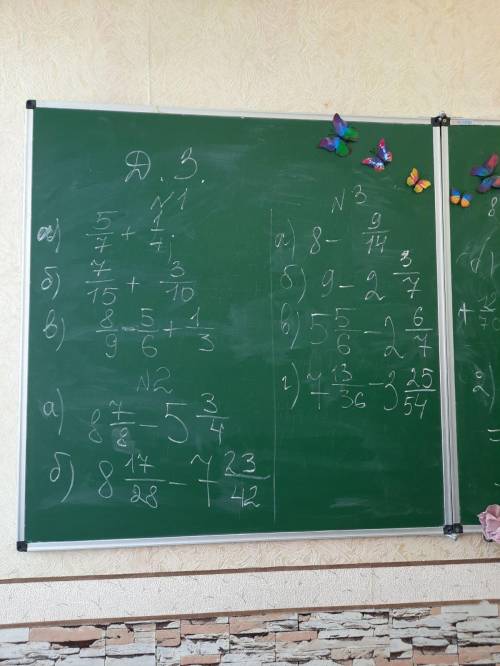 Д. З.
№1
а) 5/7 + 1/7;
б) 7/15 + 3/10
в) 8/9 - 5/6 + 1/3
№2
а) 8 7/8 - 5 3/4
б) 8 17/28 - 7 23/42
№3
а) 8 - 9/14
б) 9 - 2 3/7
в) 5 5/6 - 2 6/7
г) 7 13/36 - 3 25/54